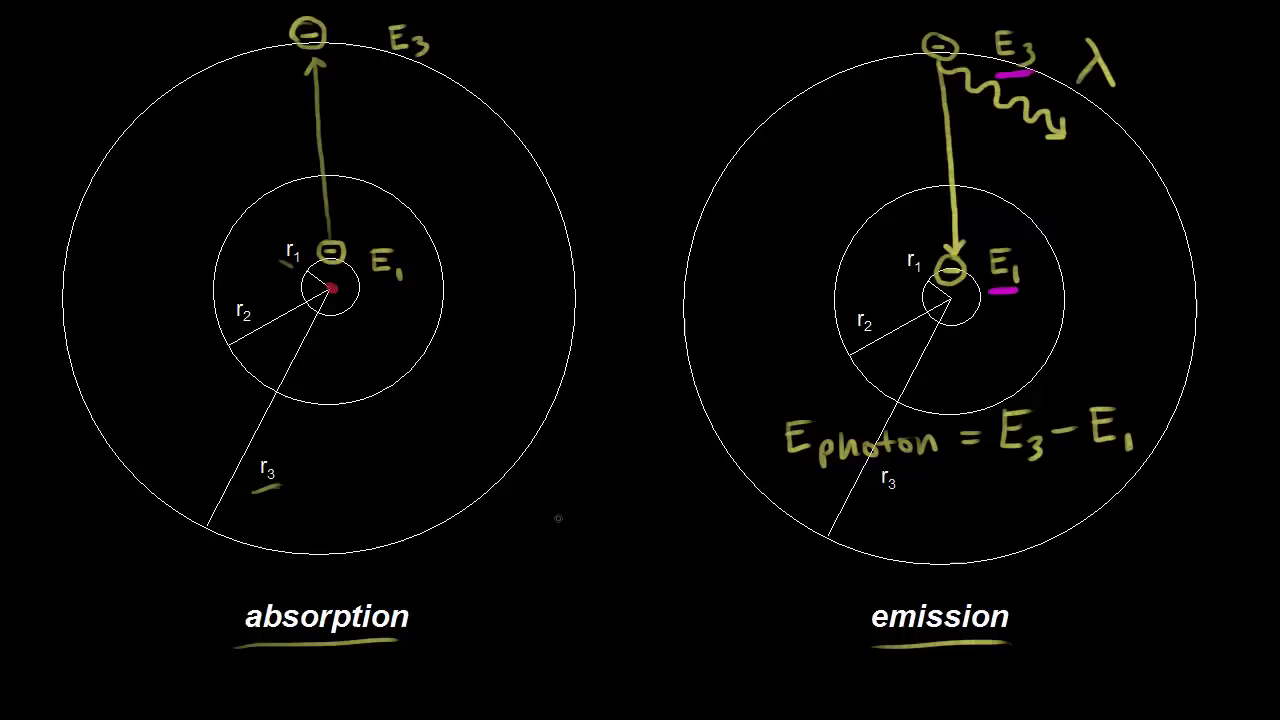 E₃
r₁
E₁
r₂
r₃
absorption
E₃ λ
r₁
E₁
r₂
E photon = E₃ - E₁
r₃
emission